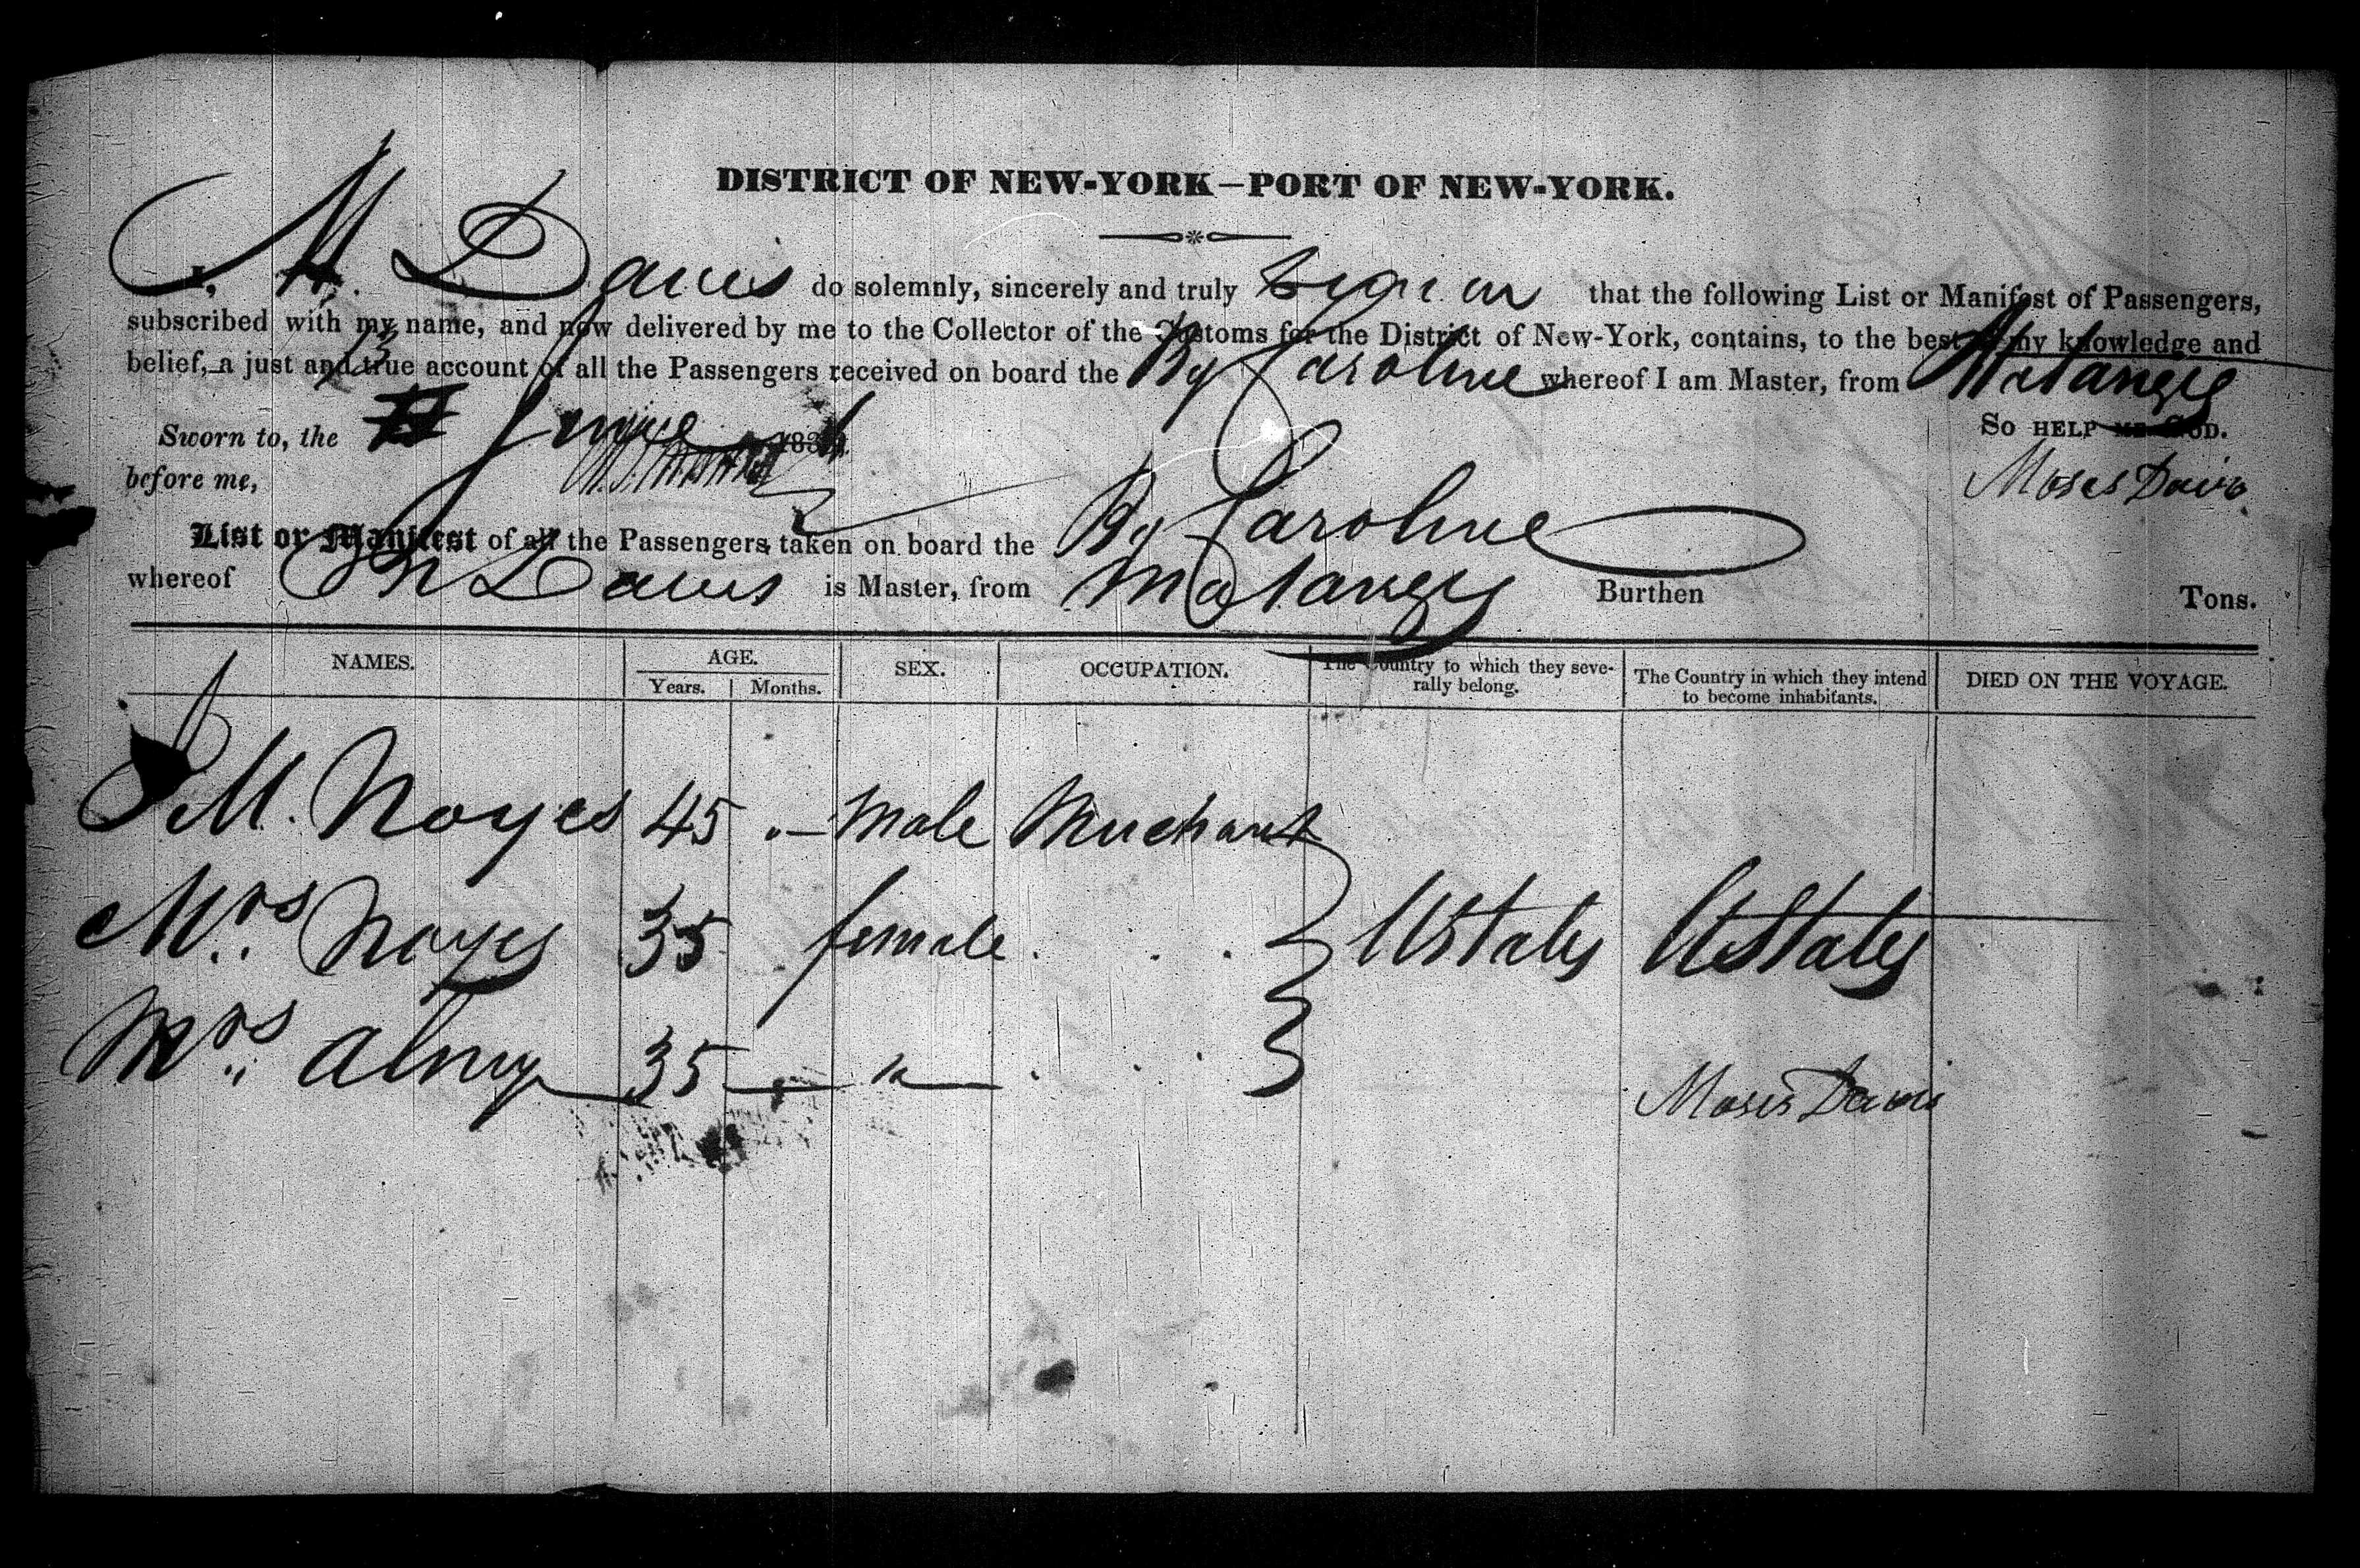 DISTRICT OF NEW-YORK—PORT OF NEW-YORK.
I, M. Davis do solemnly, sincerely and truly that the following List or Manifest of Passengers,
subscribed with my name, and now delivered by me to the Collector of the Customs for the District of New-York, contains, to the best of my knowledge and
belief, a just and true account of all the Passengers received on board the Bg Caroline whereof I am Master, from Matanzas
Sworn to, the 13 June 183
So HELP ME GOD.
before me,
Moses Davis
List or Manifest of all the Passengers taken on board the Bg Caroline
whereof M Davis is Master, from Matanzas Burthen Tons.
NAMES. AGE. SEX. OCCUPATION. The Country to which they seve-rally belong. The Country in which they intend to become inhabitants. DIED ON THE VOYAGE.
Years. Months.
M. Noyes 45 male Merchant
Mrs Noyes 35 female UStates UStates
Mrs Almy 35
Moses Davis